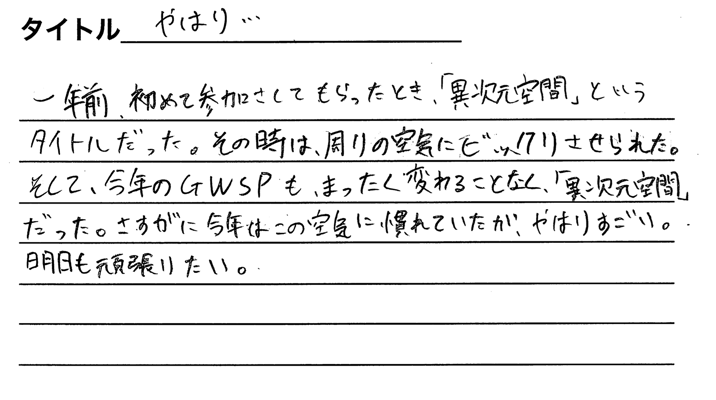 タイトル やはり…
一年前、初めて参加さしてもらったとき、「異次元空間」という
タイトルだった。その時は、周りの空気にビックリさせられた。
そして、今年のGWSPも、まったく変わることなく、「異次元空間」
だった。さすがに今年はこの空気に慣れていたが、やはりすごい。
明日も頑張りたい。